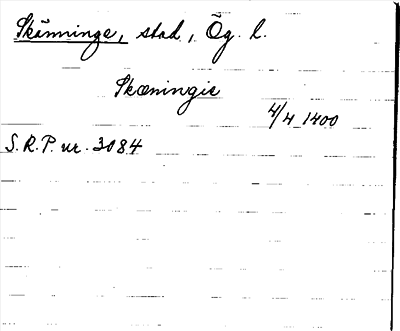 Skänninge, stad, Ög. l.
Skæningie
4/4 1400
S.R.P. nr. 3084